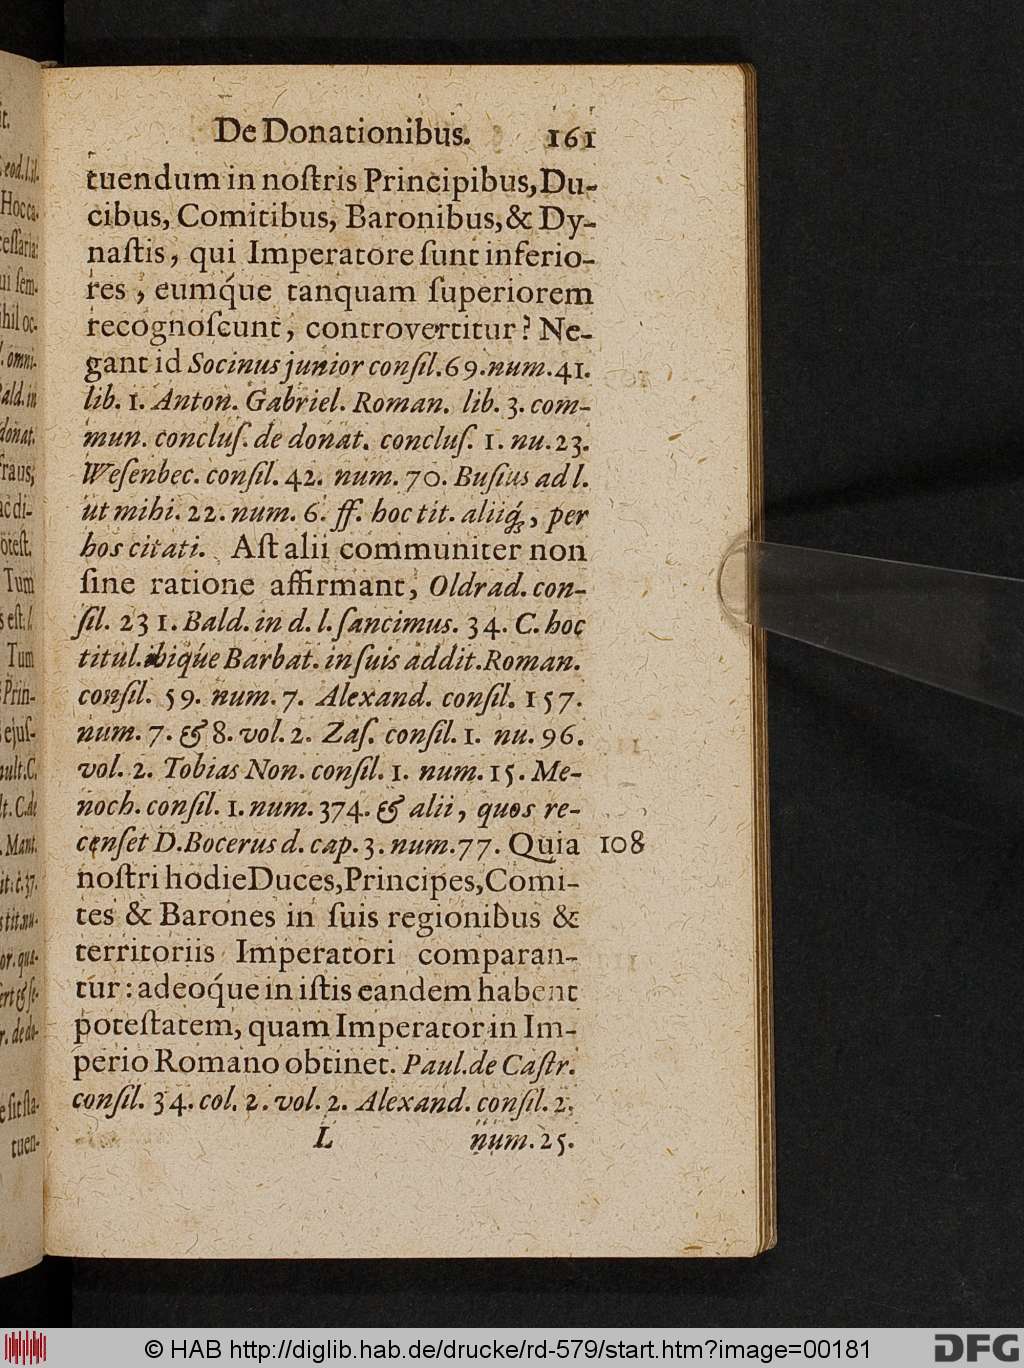 De Donationibus. 161
tuendum in noſtris Principibus, Du-
cibus, Comitibus, Baronibus, & Dy-
naſtis, qui Imperatore ſunt inferio-
res, eumq́ue tanquam ſuperiorem
recognoſcunt, controvertitur? Ne-
gant id Socinus junior conſil. 69. num. 41.
lib. 1. Anton. Gabriel. Roman. lib. 3. com-
mun. concluſ. de donat. concluſ. 1. nu. 23.
Weſenbec. conſil. 42. num. 70. Buſius ad l.
ut mihi. 22. num. 6. ff. hoc tit. aliiq́;, per
hos citati. Aſt alii communiter non
ſine ratione affirmant, Oldrad. con-
ſil. 231. Bald. in d. l. ſancimus. 34. C. hoc
titul. ibiq́ue Barbat. in ſuis addit. Roman.
conſil. 59. num. 7. Alexand. conſil. 157.
num. 7. & 8. vol. 2. Zaſ. conſil. 1. nu. 96.
vol. 2. Tobias Non. conſil. 1. num. 15. Me-
noch. conſil. 1. num. 374. & alii, quos re-
cenſet D. Bocerus d. cap. 3. num. 77. Quia 108
noſtri hodie Duces, Principes, Comi-
tes & Barones in ſuis regionibus &
territoriis Imperatori comparan-
tur: adeoq́ue in iſtis eandem habent
poteſtatem, quam Imperator in Im-
perio Romano obtinet. Paul. de Caſtr.
conſil. 34. col. 2. vol. 2. Alexand. conſil. 2.
L num. 25.
© HAB http://diglib.hab.de/drucke/rd-579/start.htm?image=00181
DFG